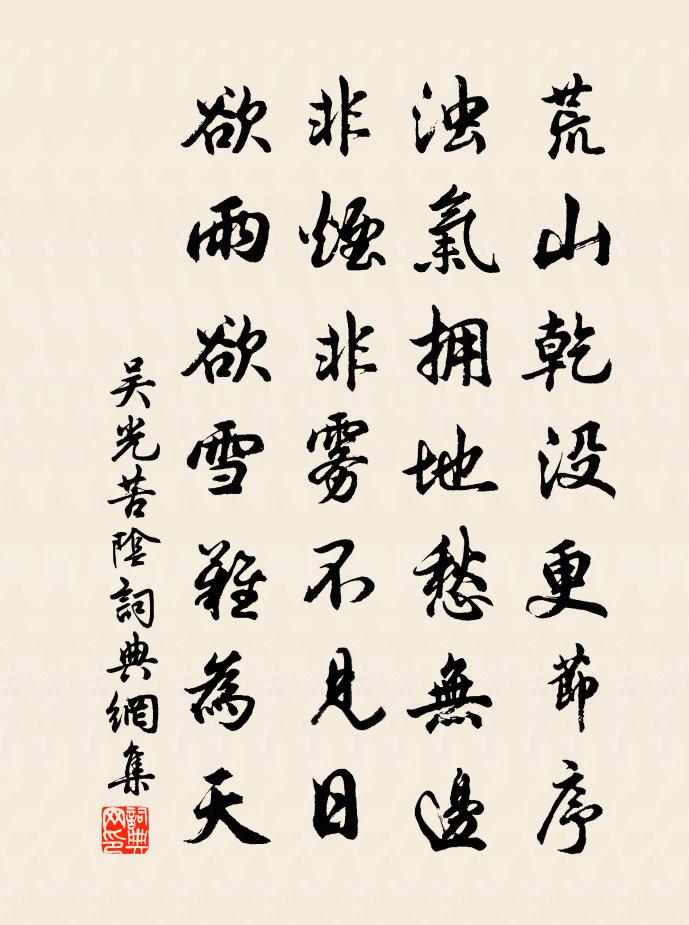 荒山乾没更節序
浊氣拥地愁無邊
非煙非雾不見日
欲雨欲雪難為天
吴光苦陰詞典網集
詞典网印